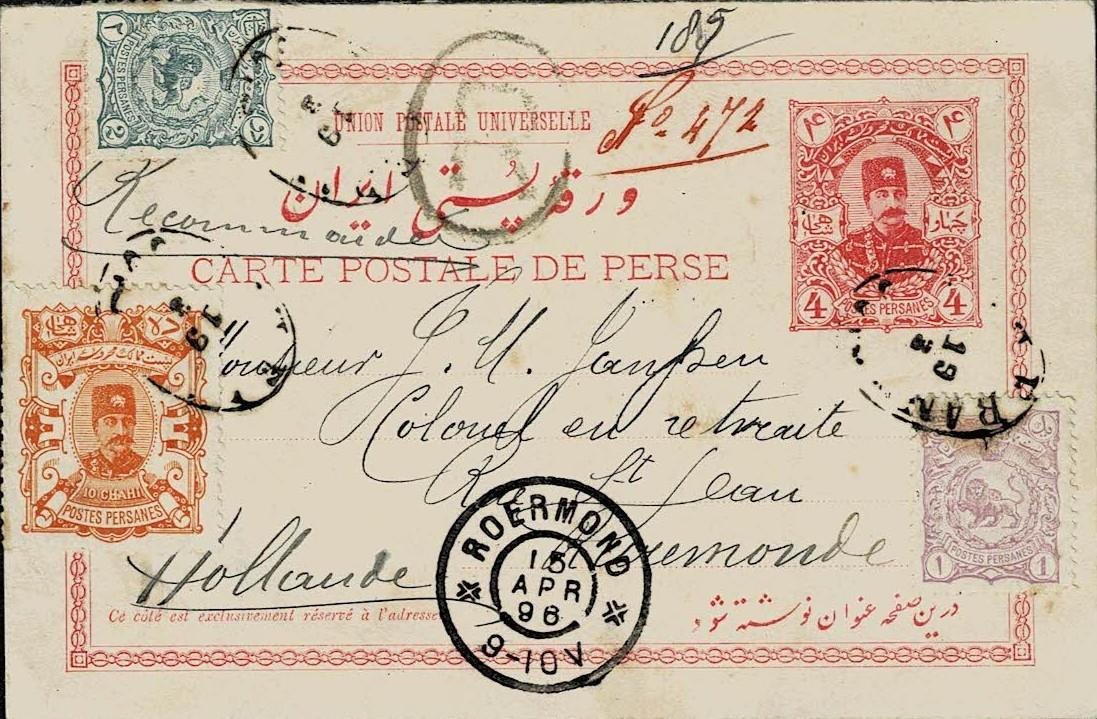 185
UNION POSTALE UNIVERSELLE
No 472
R
ورقه پستی ایران
Recommandée
CARTE POSTALE DE PERSE
۲
POSTES PERSANES
2
۴ ۴
چهار شاهی
4 POSTES PERSANES 4
19
Monsieur J. M. Janssen
Colonel en retraite
Rue St Jean
Ruremonde
Hollande
10 CHAHI
POSTES PERSANES
1 POSTES PERSANES 1
ROERMOND
15
APR
96
9-10V
Ce côté est exclusivement réservé à l'adresse
درین صفحه عنوان نوشته شود